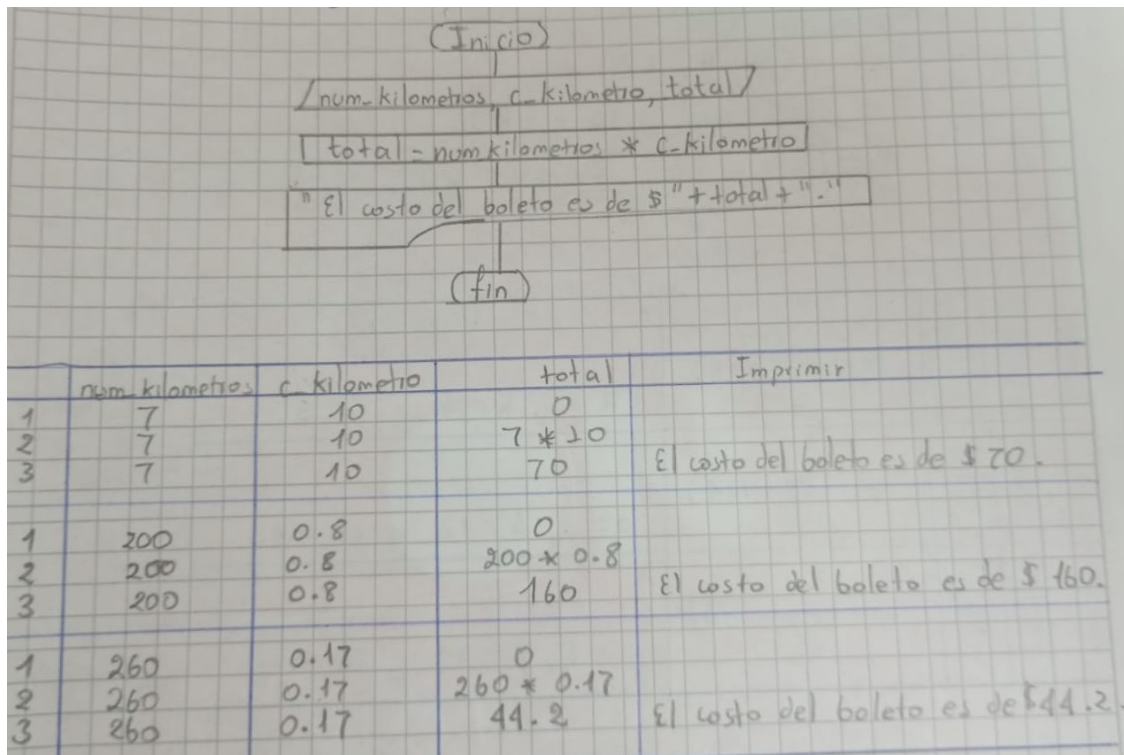 Inicio
num_kilometros, c_kilometro, total
total = num kilometros * c_kilometro
"El costo del boleto es de $"+total+"."
fin
num_kilometros c_kilometro total Imprimir
1 7 10 0
2 7 10 7 * 10
3 7 10 70 El costo del boleto es de $ 70.
1 200 0.8 0
2 200 0.8 200 * 0.8
3 200 0.8 160 El costo del boleto es de $ 160.
1 260 0.17 0
2 260 0.17 260 * 0.17
3 260 0.17 44.2 El costo del boleto es de $44.2.